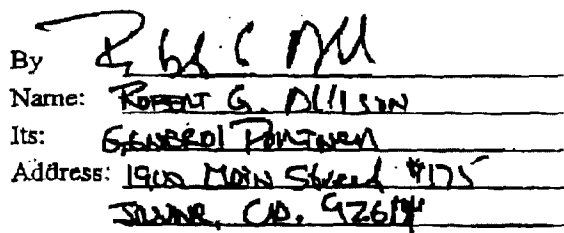 By
Name: ROBERT G. ALLISON
Its: GENERAL PARTNER
Address: 1900 MAIN Street #175
IRVINE, CA. 92614